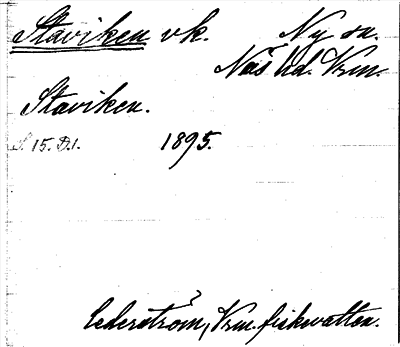 Staviken vk. Ny sn.
Näs hd. Vrm.
Staviken.
S 15. D.1. 1895.
Cederström, Vrm. fiskevatten.